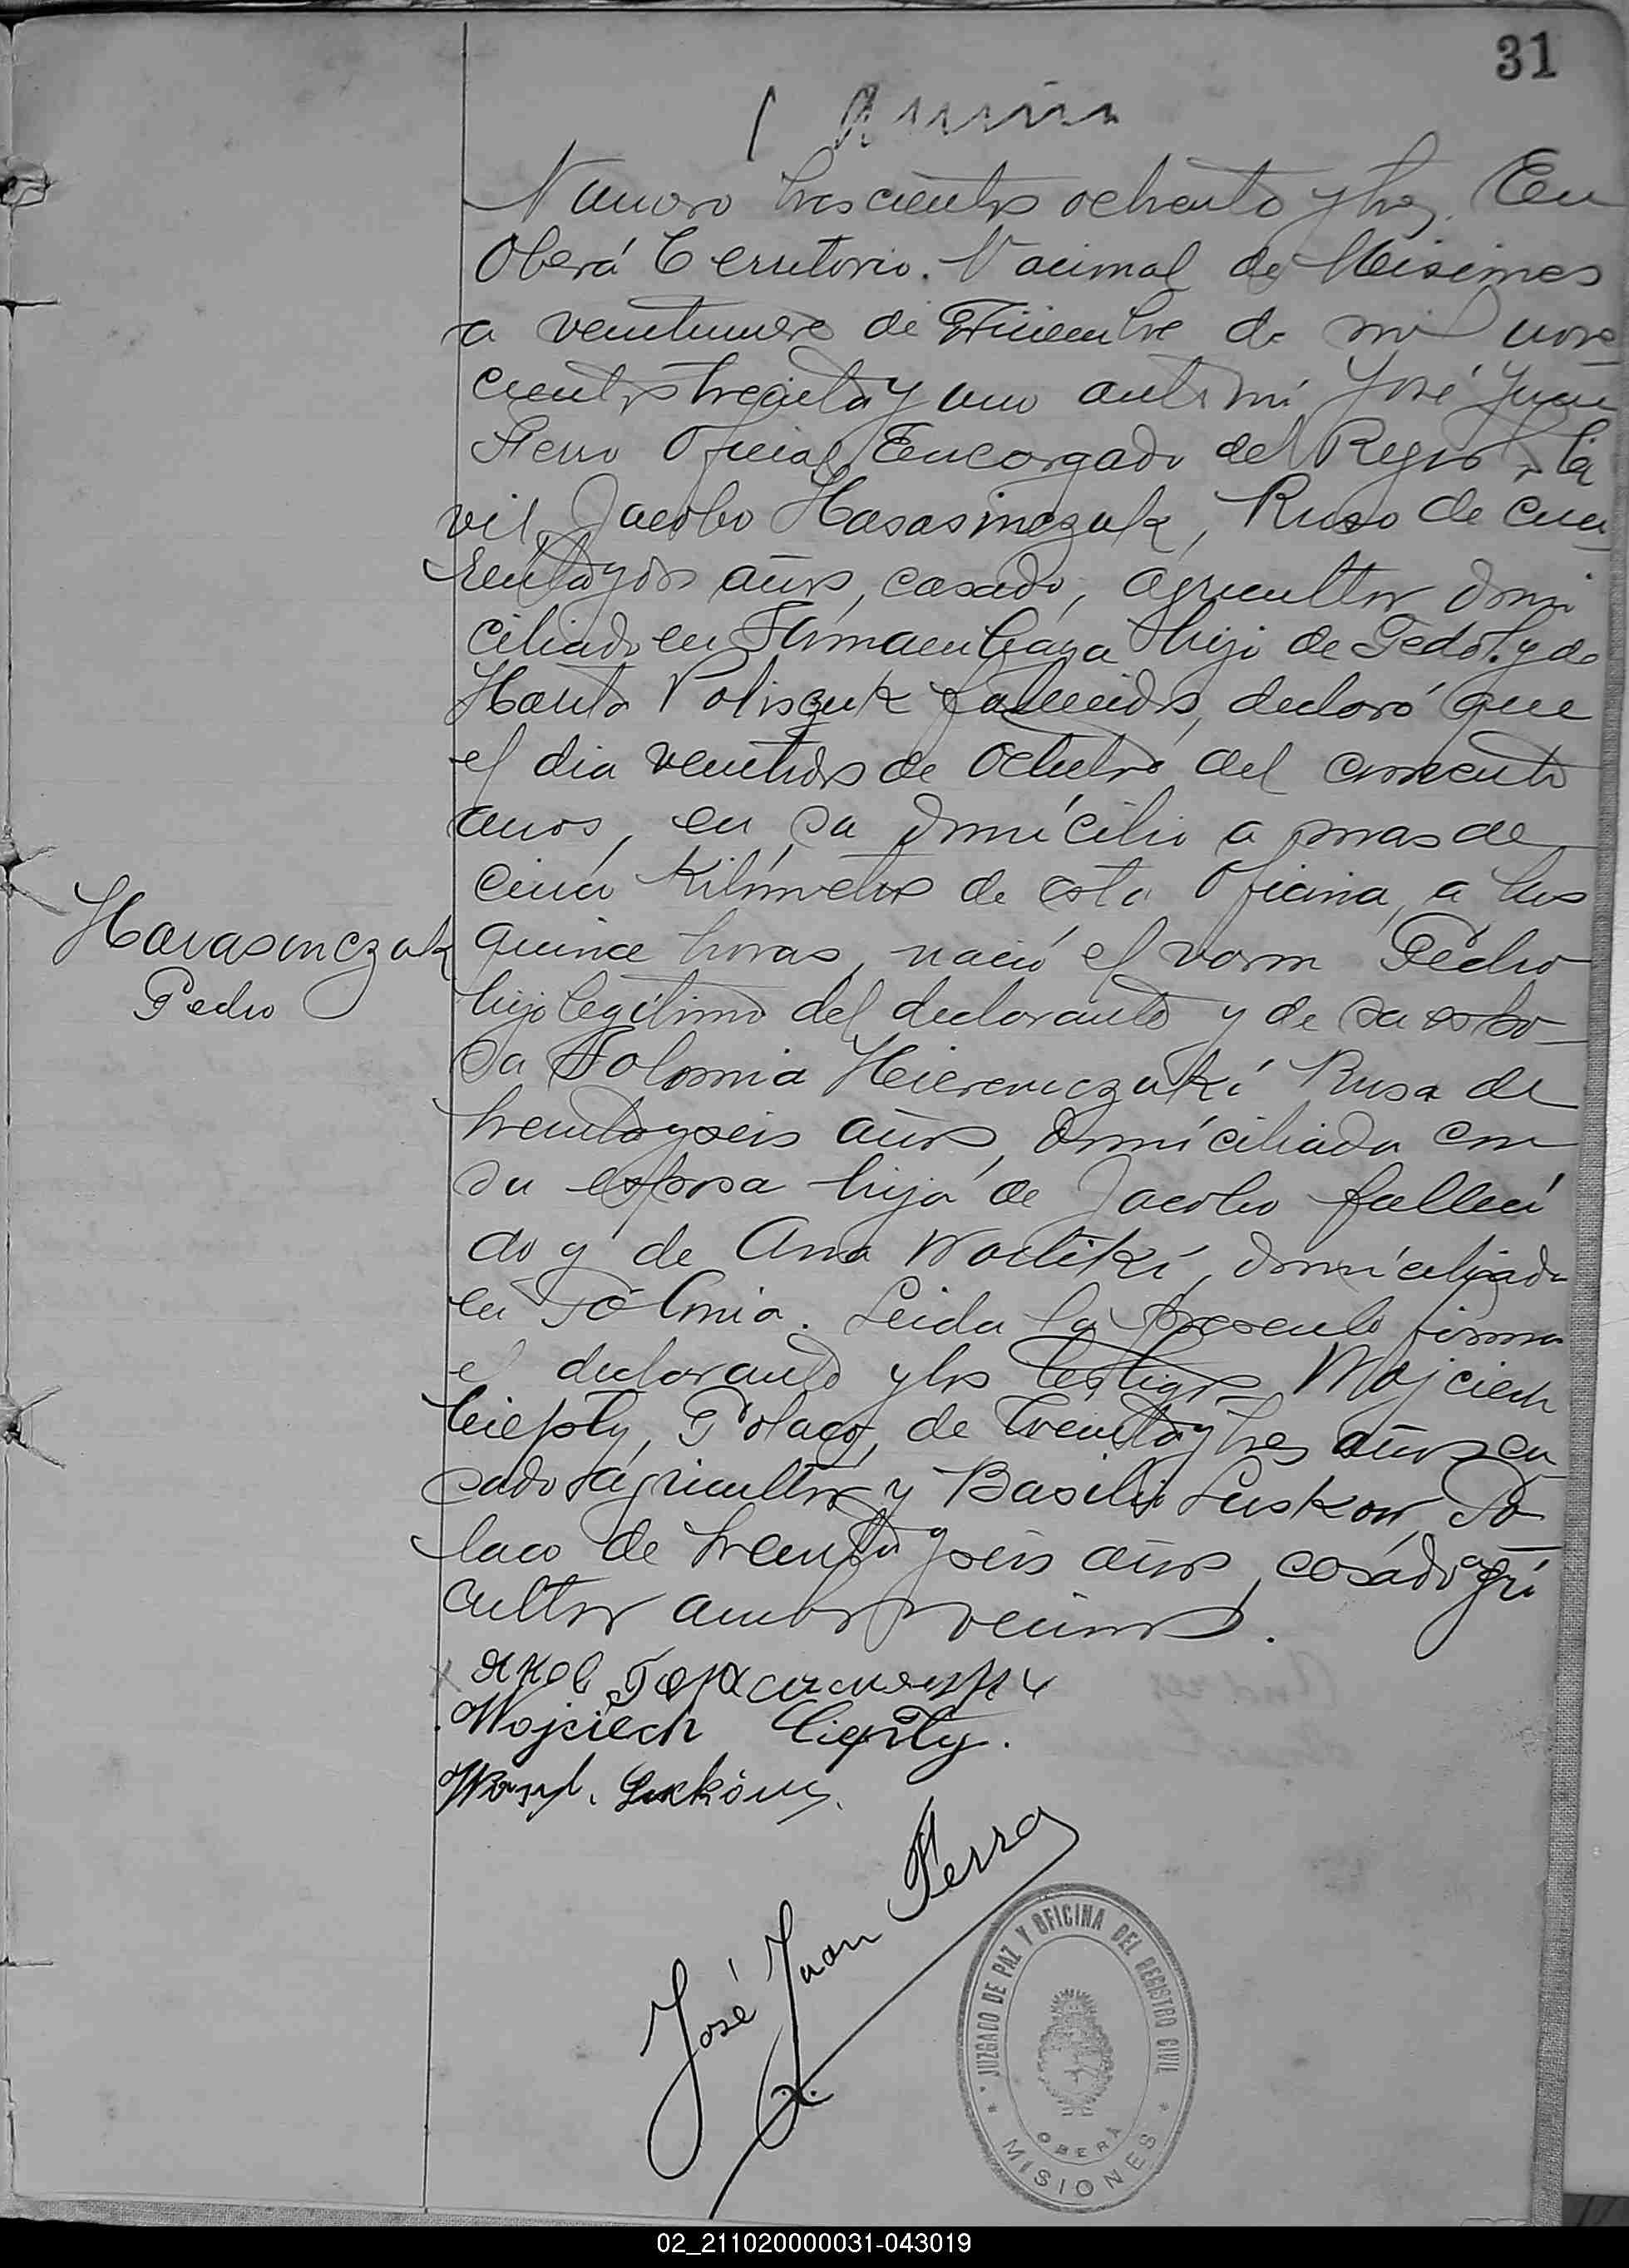 31
Numero trescientos ochenta y tres. En
Oberá Territorio Nacional de Misiones
a veintinueve de Diciembre de mil nove
cientos treinta y uno ante mi José Juan
Ferro Oficial Encargado del Registro Ci
vil, Jacobo Harasimczuk, Ruso de cua
renta y dos años, casado, agricultor domi
ciliado en hijo de Fedor y de
Poliszuk fallecidos, declaró que
el dia veintidos de Octubre del corriente
anos, en su domicilio a mas de
cinco Kilómetros de esta Oficina, a las
quince horas, nació el varon Pedro
Harasimczuk
Pedro
hijo legítimo del declarante y de su espo
sa Solomia Rusa de
treinta y seis años, domiciliada con
su esposa hija de Jacobo falleci
do y de Ana domiciliada
en Polonia. Leida la presente firma
el declarante y los testigos Wojciech
Cieply, Polaco, de treinta y tres años ca
sado agricultor y Basilio Luskow, Po
laco de treinta y seis años, casado agri
cultor ambos vecinos.
Wojciech Ciepły.
Wasyl.
José Juan Ferro
JUZGADO DE PAZ Y OFICINA DEL REGISTRO CIVIL
OBERÁ
* MISIONES *
02_211020000031-043019